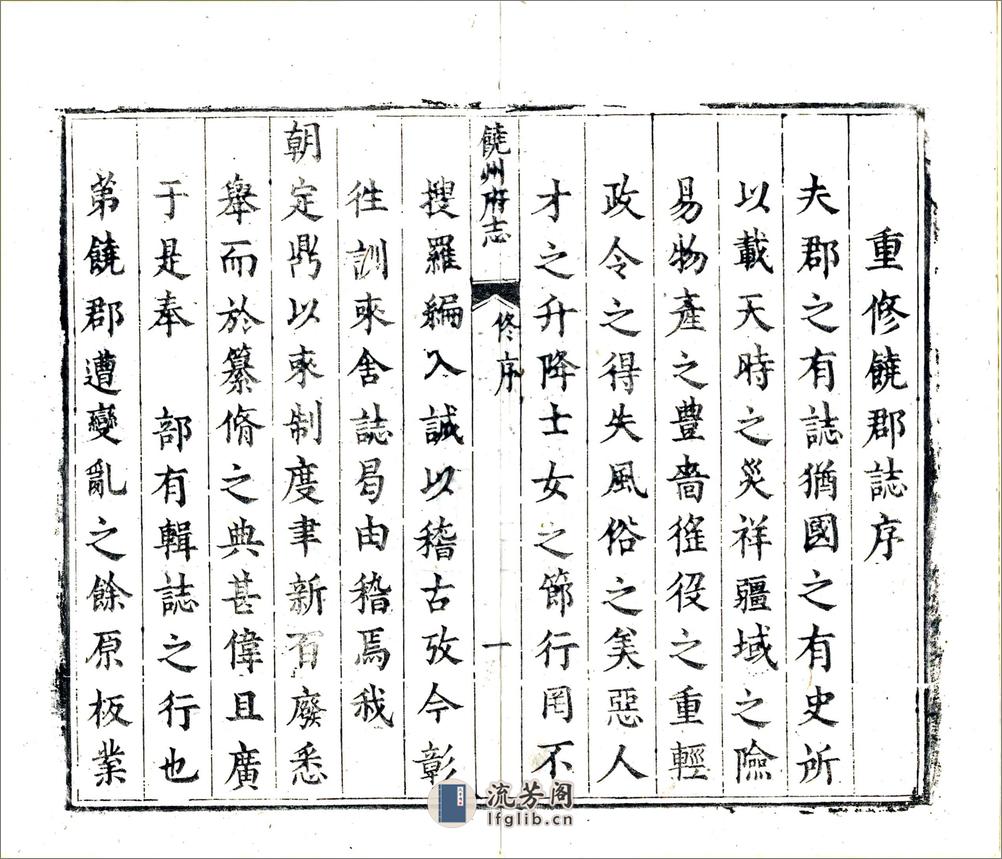 重修饒郡誌序
夫郡之有誌猶國之有史所
以載天時之災祥疆域之險
易物產之豊嗇徭役之重輕
政令之得失風俗之美惡人
才之升降士女之節行罔不
饒州府志
修序
一
搜羅編入誠以稽古攷今彰
徃訓來舍誌曷由稽焉我
朝定鼎以來制度聿新百廢悉
舉而於纂脩之典甚偉且廣
于是奉 部有輯誌之行也
第饒郡遭變亂之餘原板業
流芳阁
lfglib.cn